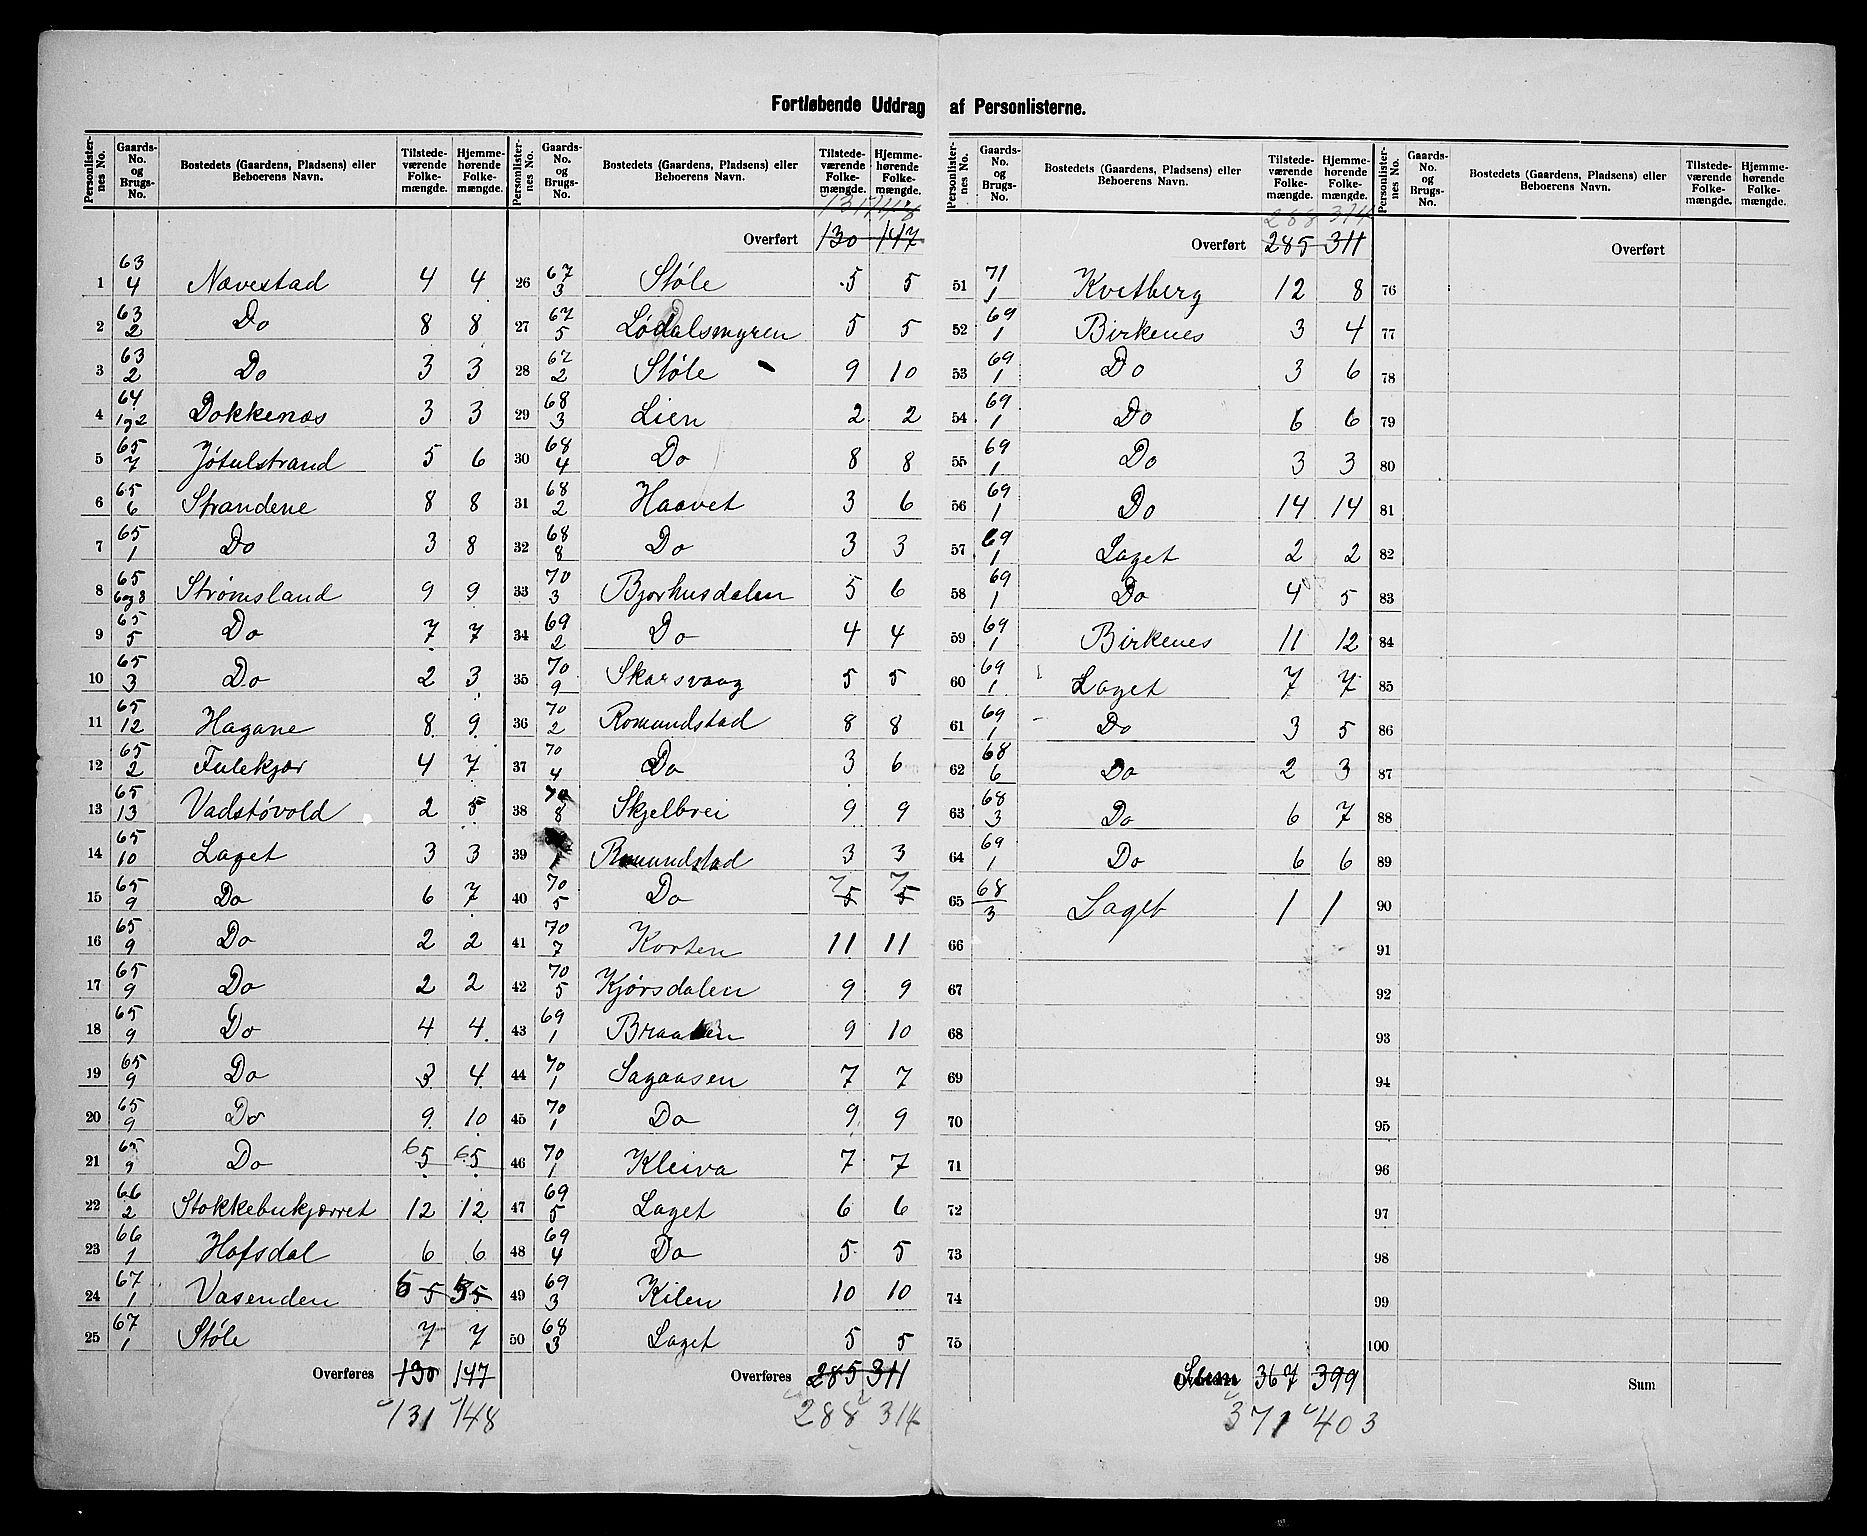 Fortløbende Uddrag af Personlisterne.
Personlisternes No. | Gaards-No. og Brugs-No. | Bostedets (Gaardens, Pladsens) eller Beboerens Navn. | Tilstedeværende Folkemængde. | Hjemmehørende Folkemængde.
1 63/4 Nævestad 4 4
2 63/2 Do 8 8
3 63/2 Do 3 3
4 64/1og2 Dokkenæs 3 3
5 65/7 Jøtulstrand 5 6
6 65/6 Strandene 8 8
7 65/1 Do 3 8
8 65/6og8 Strømsland 9 9
9 65/5 Do 7 7
10 65/3 Do 2 3
11 65/12 Hagane 8 9
12 65/2 Fulekjær 4 7
13 65/13 Vadstøvold 2 5
14 65/10 Laget 3 3
15 65/9 Do 6 7
16 65/9 Do 2 2
17 65/9 Do 2 2
18 65/9 Do 4 4
19 65/9 Do 3 4
20 65/9 Do 9 10
21 65/9 Do 6 5 6 5
22 66/2 Stokkebukjærret 12 12
23 66/1 Hofsdal 6 6
24 67/1 Vasenden 5 5 5 5
25 67/1 Støle 7 7
Overføres 130 147
131 148
Personlisternes No. | Gaards-No. og Brugs-No. | Bostedets (Gaardens, Pladsens) eller Beboerens Navn. | Tilstedeværende Folkemængde. | Hjemmehørende Folkemængde.
131 148
Overført 130 147
26 67/3 Støle 5 5
27 67/5 Lødalsmyren 5 5
28 67/2 Støle 9 10
29 68/3 Lien 2 2
30 68/4 Do 8 8
31 68/2 Haavet 3 6
32 68/8 Do 3 3
33 70/3 Bjorhusdalen 5 6
34 69/2 Do 4 4
35 70/9 Skarsvaag 5 5
36 70/2 Romundstad 8 8
37 70/4 Do 3 6
38 70/8 Skjelbrei 9 9
39 /1 Romundstad 3 3
40 70/5 Do 7 5 7 5
41 70/7 Korten 11 11
42 70/5 Kjørsdalen 9 9
43 69/1 Braaten 9 10
44 70/1 Sagaasen 7 7
45 70/1 Do 9 9
46 70/1 Kleiva 7 7
47 69/5 Laget 6 6
48 69/4 Do 5 5
49 69/3 Kilen 10 10
50 68/3 Laget 5 5
Overføres 285 311
288 314
Personlisternes No. | Gaards-No. og Brugs-No. | Bostedets (Gaardens, Pladsens) eller Beboerens Navn. | Tilstedeværende Folkemængde. | Hjemmehørende Folkemængde.
288 314
Overført 285 311
51 71/1 Kvitberg 12 8
52 69/1 Birkenes 3 4
53 69/1 Do 3 6
54 69/1 Do 6 6
55 69/1 Do 3 3
56 69/1 Do 14 14
57 69/1 Laget 2 2
58 69/1 Do 4 5
59 69/1 Birkenes 11 12
60 69/1 Laget 7 7
61 69/1 Do 3 5
62 68/6 Do 2 3
63 68/3 Do 6 7
64 69/1 Do 6 6
65 68/3 Laget 1 1
66
67
68
69
70
71
72
73
74
75
Sum 367 399
371 403
Personlisternes No. | Gaards-No. og Brugs-No. | Bostedets (Gaardens, Pladsens) eller Beboerens Navn. | Tilstedeværende Folkemængde. | Hjemmehørende Folkemængde.
Overført
76
77
78
79
80
81
82
83
84
85
86
87
88
89
90
91
92
93
94
95
96
97
98
99
100
Sum